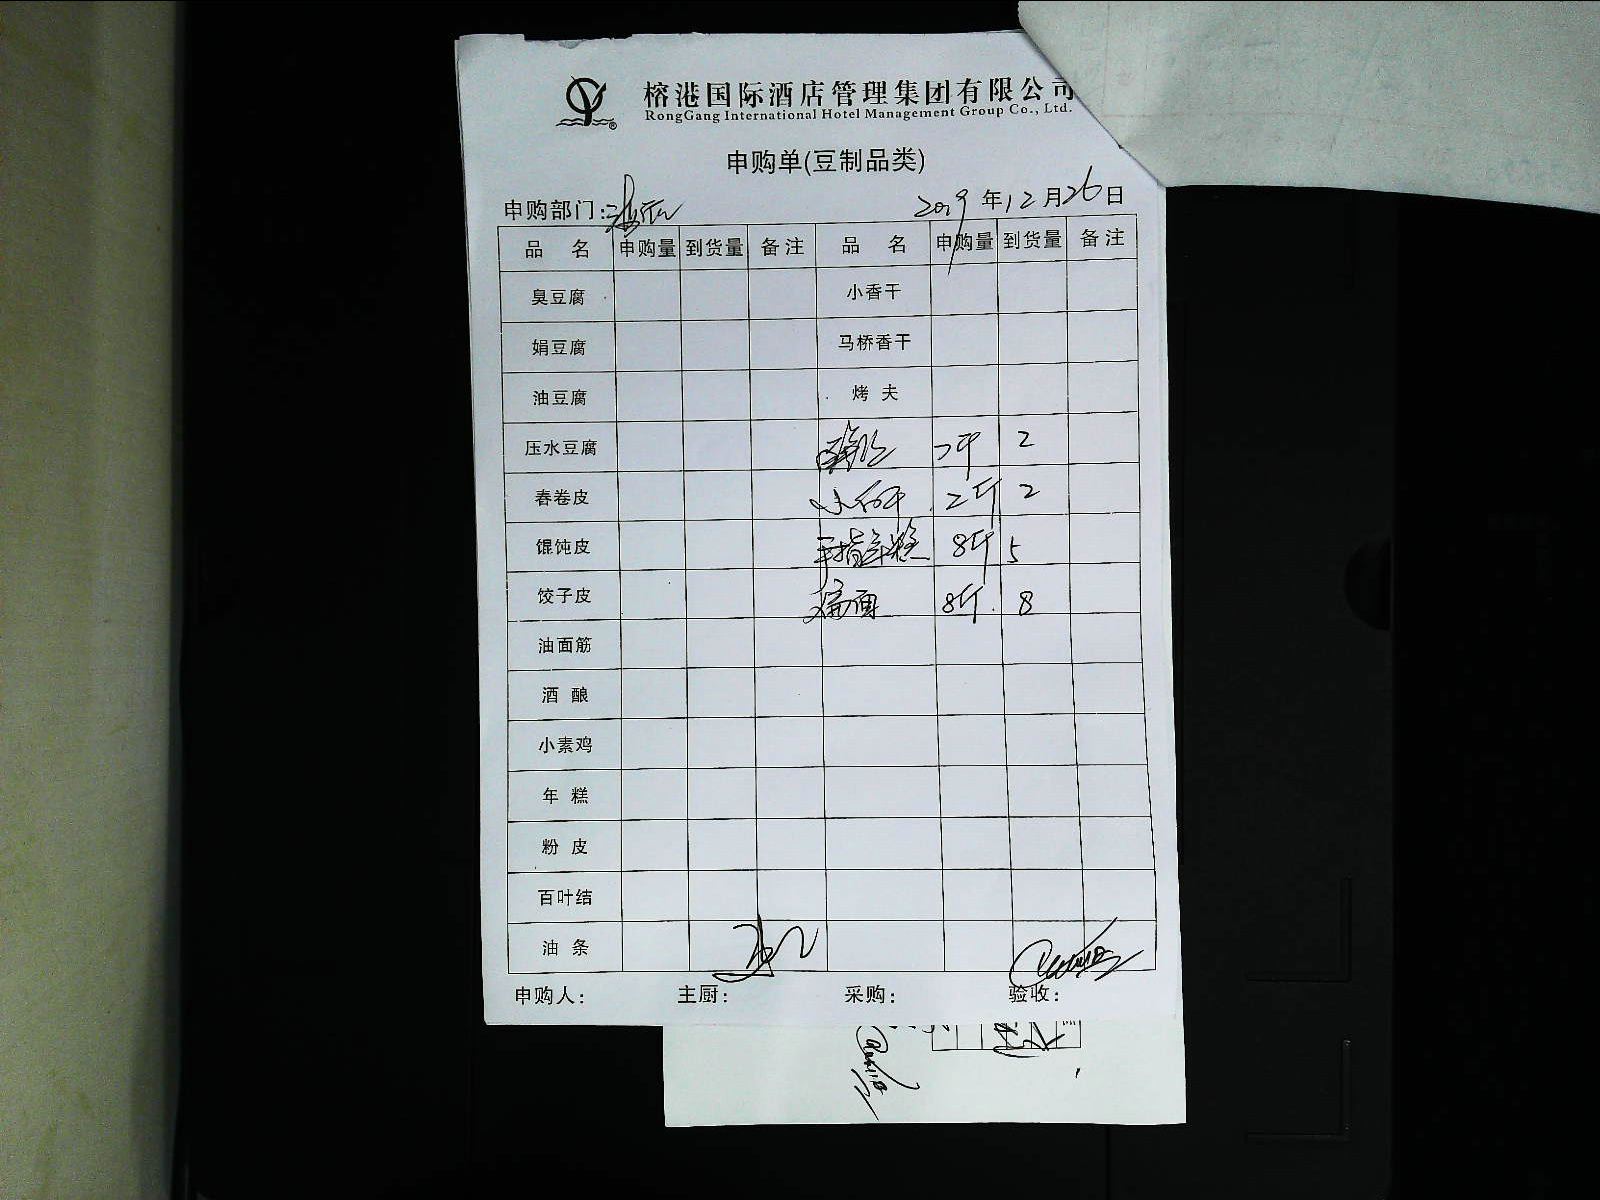 榕港国际酒店管理集团有限公司
RongGang International Hotel Management Group Co., Ltd.
申购单(豆制品类)
申购部门:
2019 年 12 月 26 日
品 名 申购量 到货量 备注 品 名 申购量 到货量 备注
臭豆腐 小香干
娟豆腐 马桥香干
油豆腐 烤 夫
压水豆腐 2斤 2
春卷皮 小香干 2斤 2
馄饨皮 手指年糕 8斤 5
饺子皮 扁面 8斤 8
油面筋
酒 酿
小素鸡
年 糕
粉 皮
百叶结
油 条
申购人: 主厨: 采购: 验收: